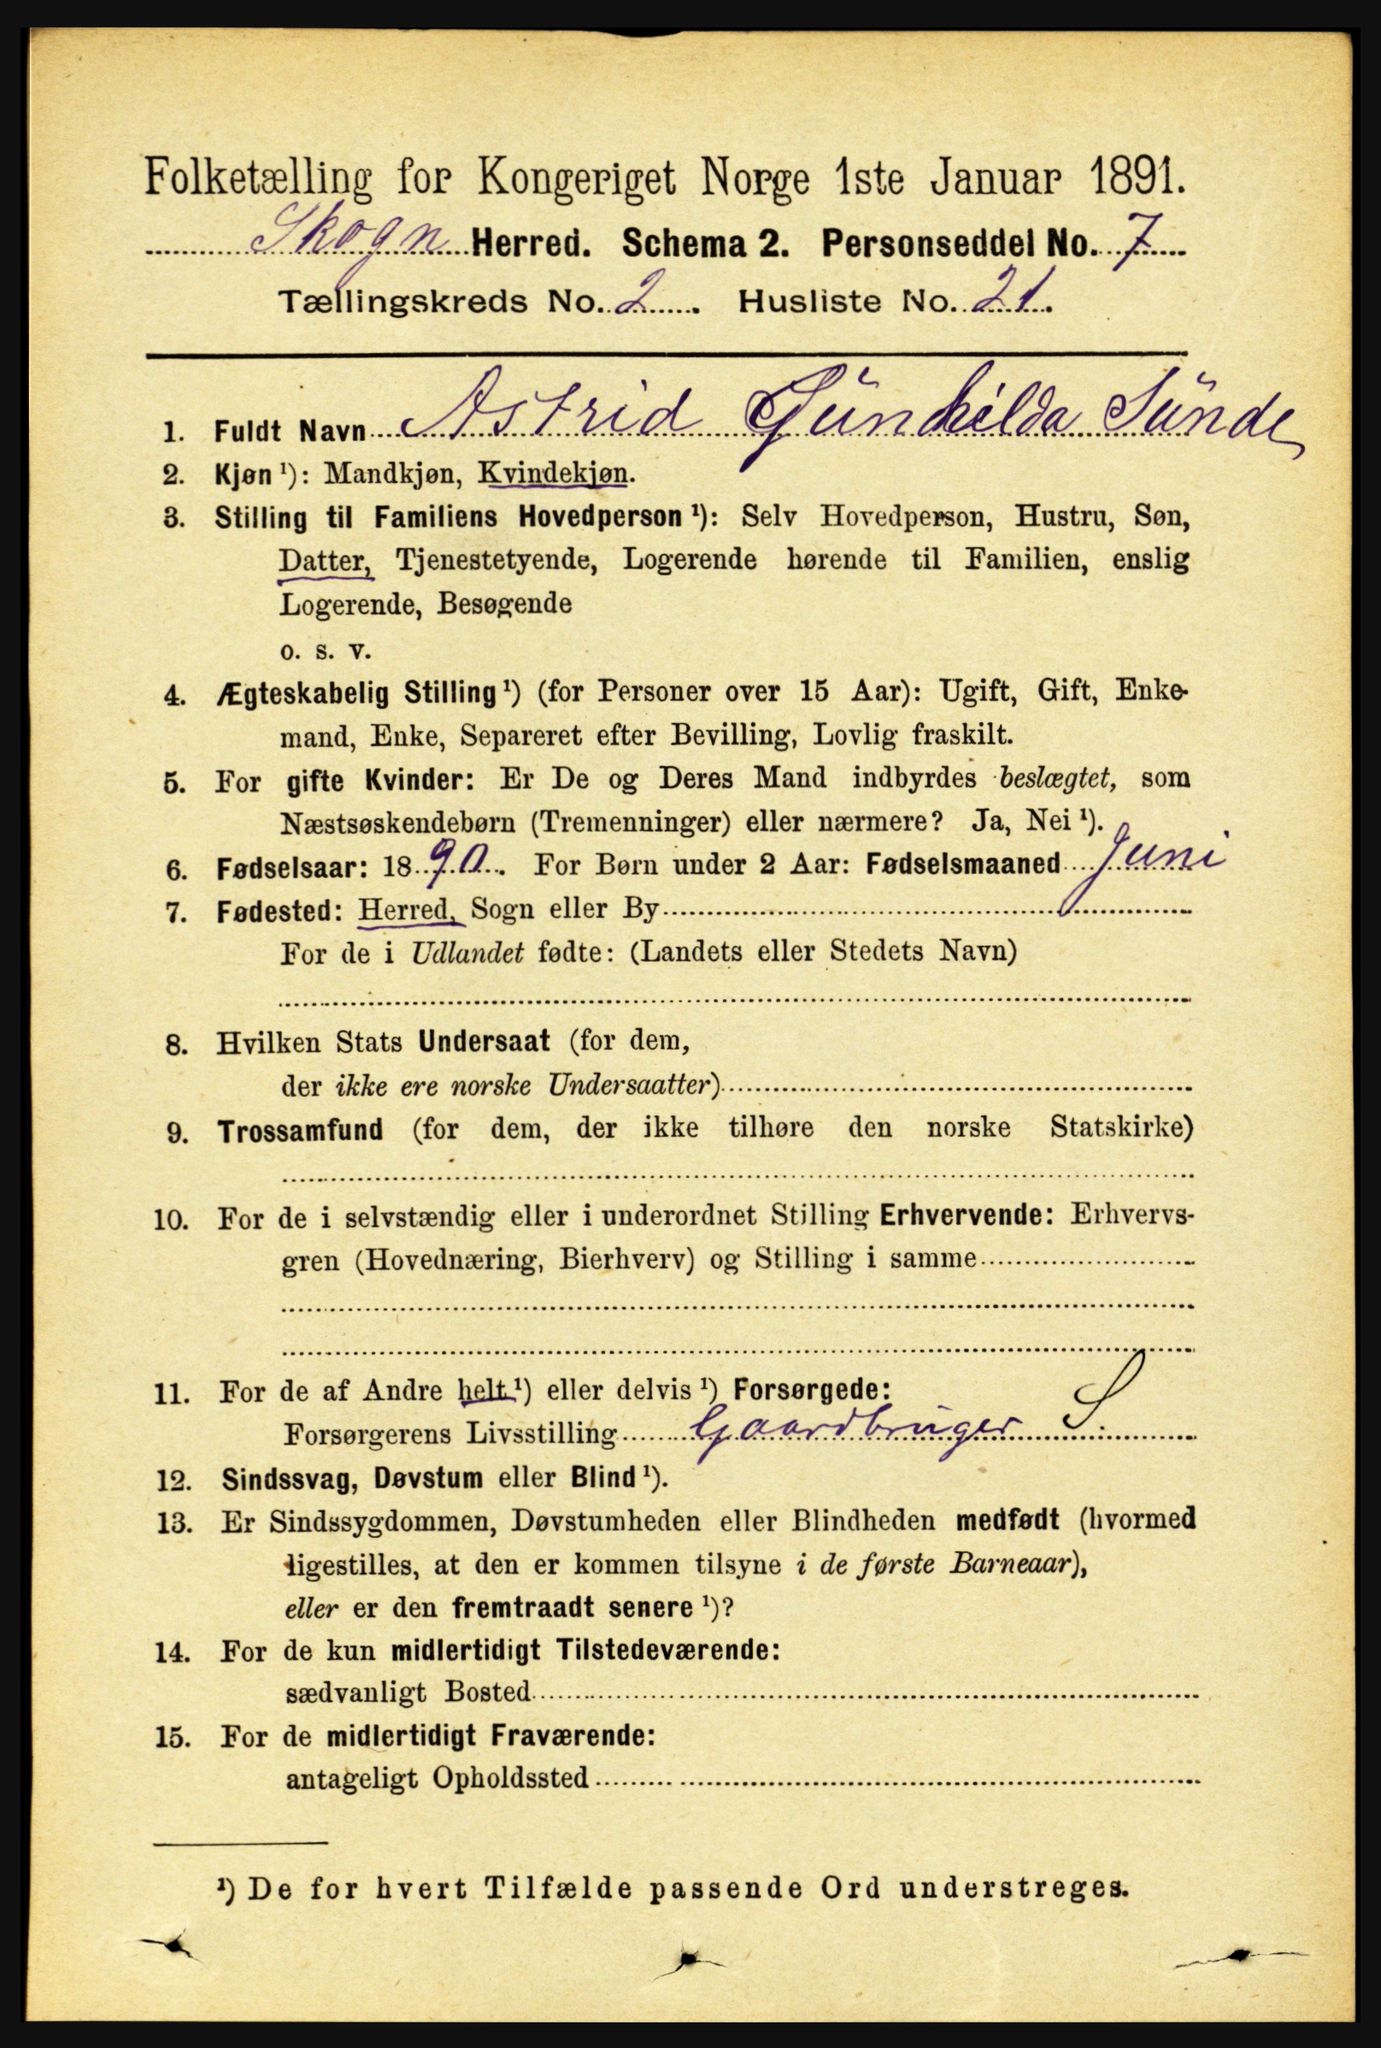 Folketælling for Kongeriget Norge 1ste Januar 1891.
Skogn Herred. Schema 2. Personseddel No. 7
Tællingskreds No. 2. Husliste No. 21.
1. Fuldt Navn Astrid Gunhilda Sunde
2. Kjøn ¹): Mandkjøn, Kvindekjøn.
3. Stilling til Familiens Hovedperson ¹): Selv Hovedperson, Hustru, Søn,
Datter, Tjenestetyende, Logerende hørende til Familien, enslig
Logerende, Besøgende
o. s. v.
4. Ægteskabelig Stilling ¹) (for Personer over 15 Aar): Ugift, Gift, Enke-
mand, Enke, Separeret efter Bevilling, Lovlig fraskilt.
5. For gifte Kvinder: Er De og Deres Mand indbyrdes beslægtet, som
Næstsøskendebørn (Tremenninger) eller nærmere? Ja, Nei ¹).
6. Fødselsaar: 1890. For Børn under 2 Aar: Fødselsmaaned Juni
7. Fødested: Herred, Sogn eller By
For de i Udlandet fødte: (Landets eller Stedets Navn)
8. Hvilken Stats Undersaat (for dem,
der ikke ere norske Undersaatter)
9. Trossamfund (for dem, der ikke tilhøre den norske Statskirke)
10. For de i selvstændig eller i underordnet Stilling Erhvervende: Erhvervs-
gren (Hovednæring, Bierhverv) og Stilling i samme
11. For de af Andre helt ¹) eller delvis ¹) Forsørgede:
Forsørgerens Livsstilling Gaardbruger S.
12. Sindssvag, Døvstum eller Blind ¹).
13. Er Sindssygdommen, Døvstumheden eller Blindheden medfødt (hvormed
ligestilles, at den er kommen tilsyne i de første Barneaar),
eller er den fremtraadt senere ¹)?
14. For de kun midlertidigt Tilstedeværende:
sædvanligt Bosted
15. For de midlertidigt Fraværende:
antageligt Opholdssted
¹) De for hvert Tilfælde passende Ord understreges.